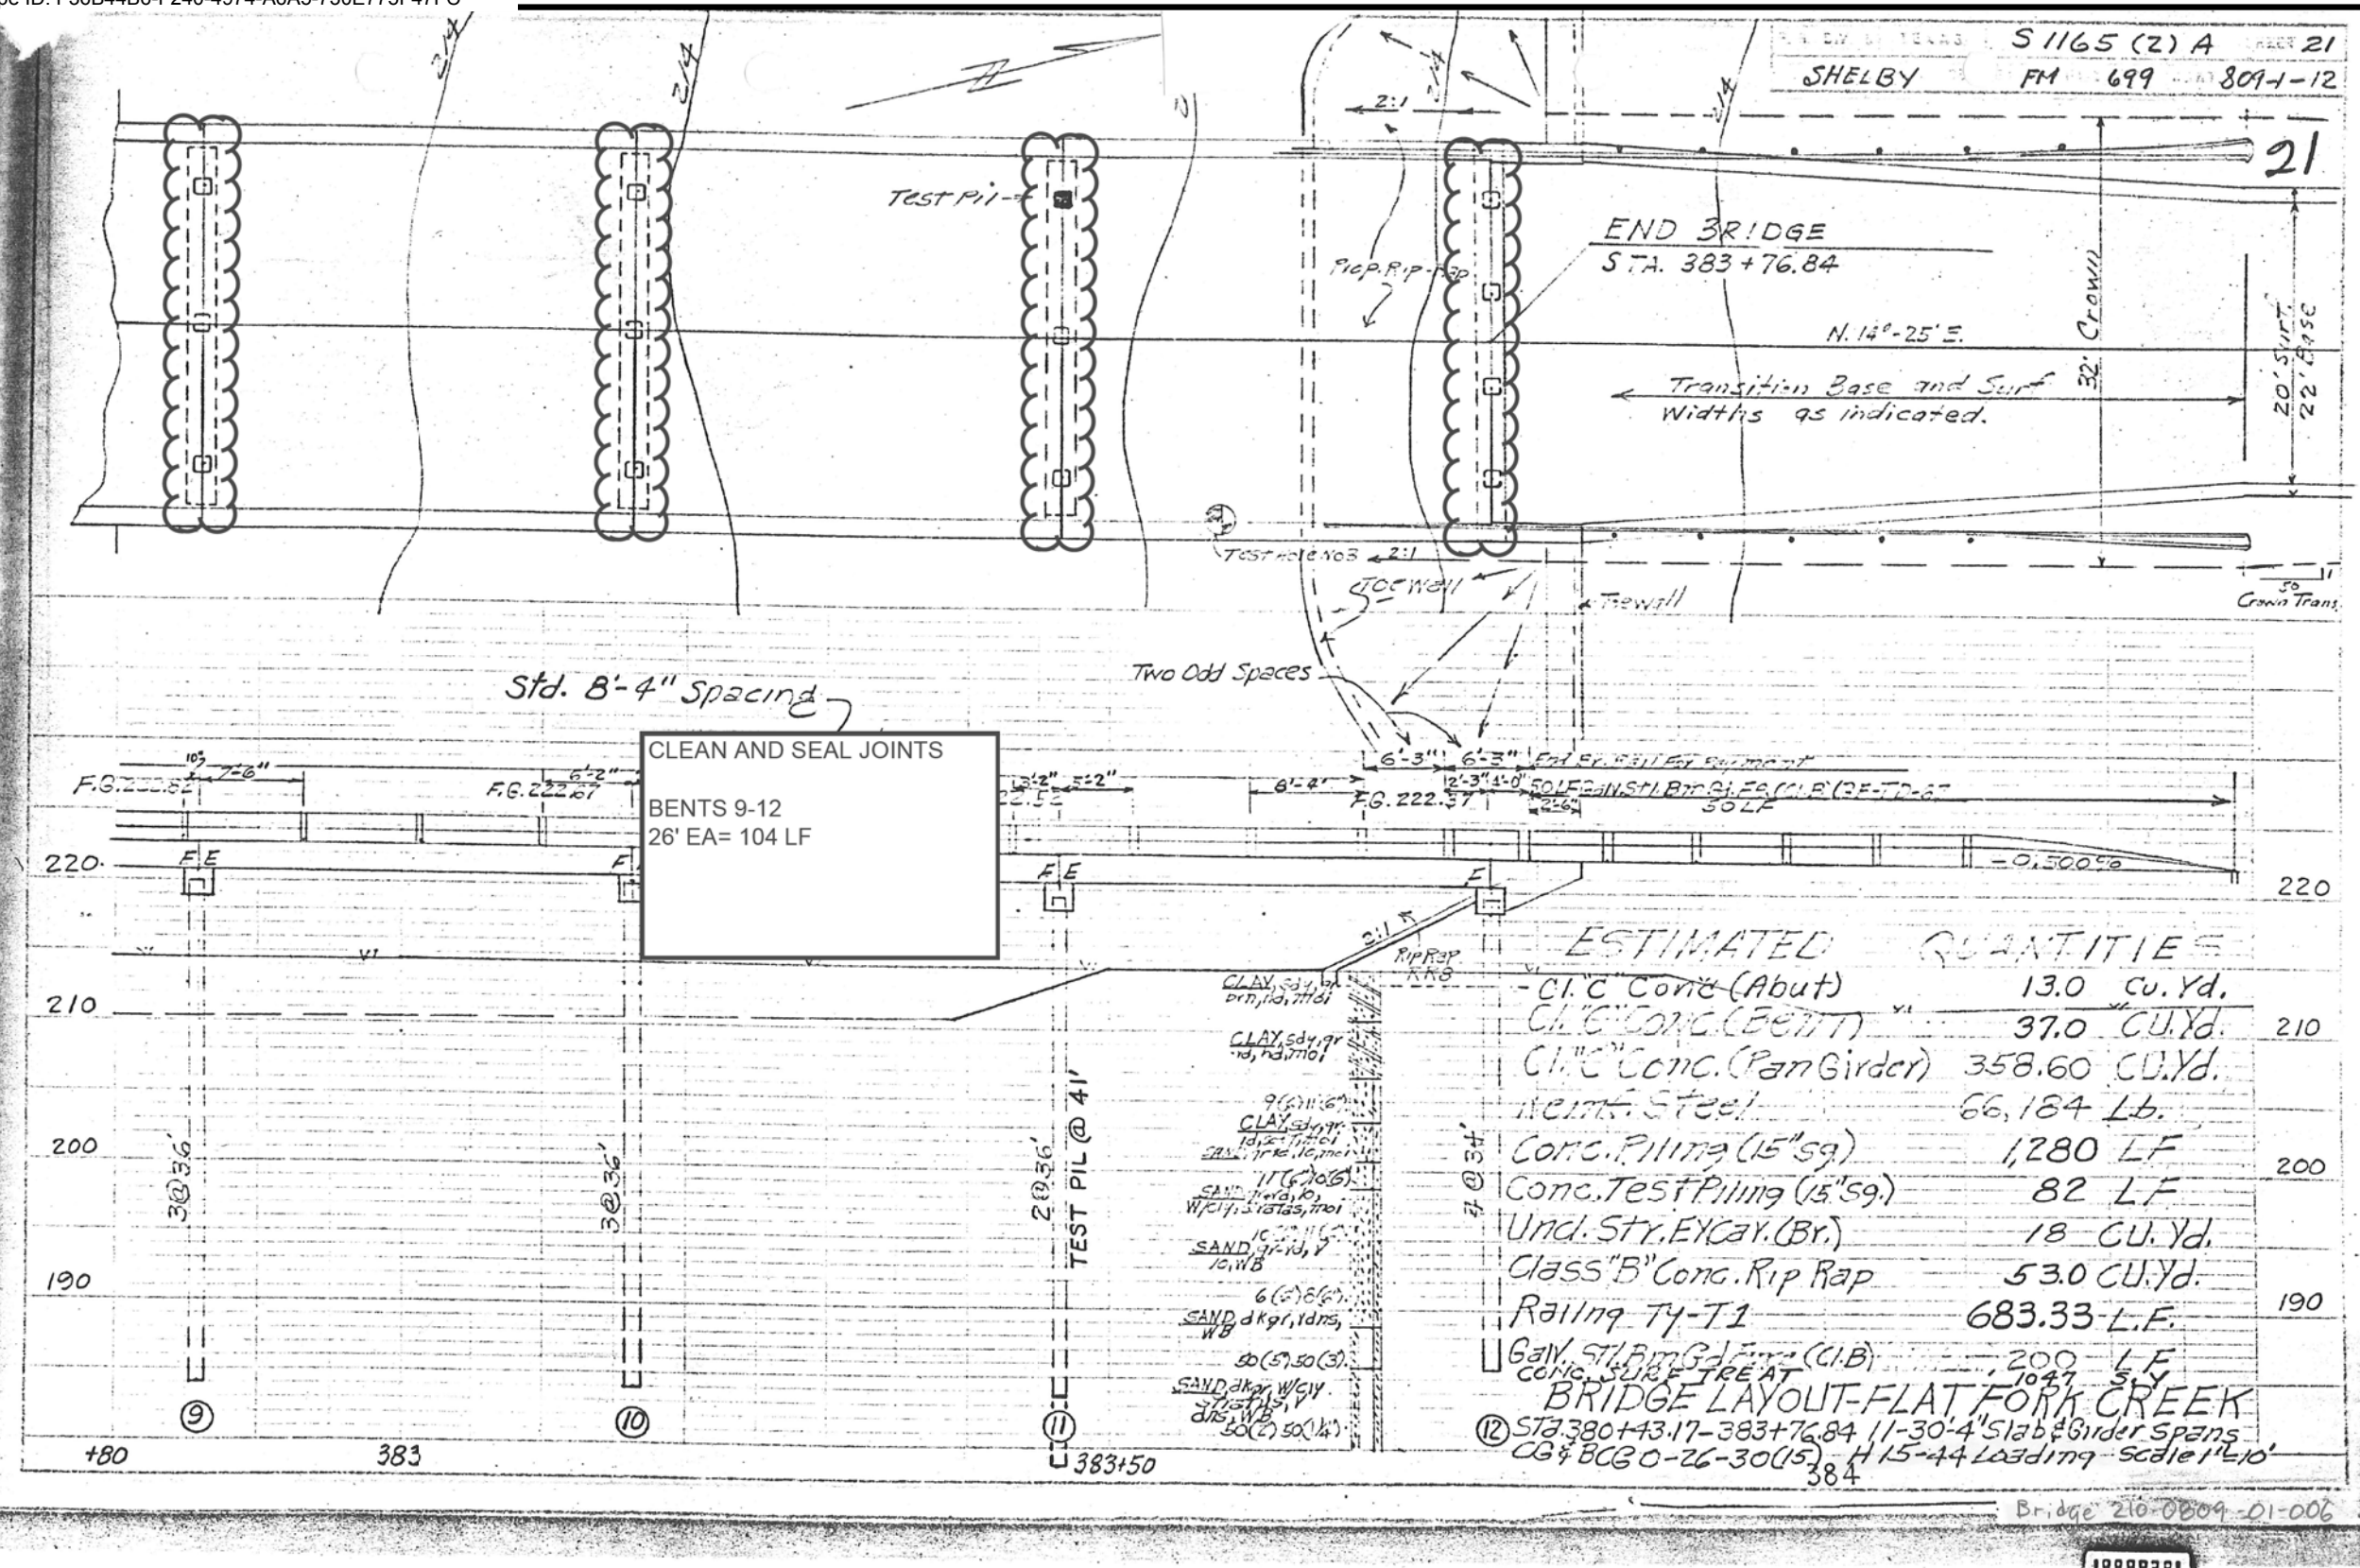 S 1165 (2) A 21
SHELBY FM 699 809-1-12
21
214
214
214
214
2:1
Test Pil
Prop. Rip-Rap
END BRIDGE
STA. 383+76.84
N. 14°-25' E.
32' Crown
20' Surf.
22' Base
Transition Base and Surf
Widths as indicated.
Test Hole No3
2:1
Toe Wall
Tiewall
50
Crown Trans.
Two Odd Spaces
Std. 8'-4" Spacing
CLEAN AND SEAL JOINTS
BENTS 9-12
26' EA= 104 LF
7'-6"
F.G. 222.67
5'-2"
8'-4"
6'-3" 6'-3" End Br. Rail For Payment
F.G. 222.37
2'-3"
1'-0"
2'-6"
50 LF
F E
F
F E
F
-0.500%
220
220
2:1
Rip Rap
RR8
210
210
200
200
190
190
3@36'
3@36'
2@36'
TEST PIL @ 41'
4 @ 34'
CLAY, sdy,
CLAY, sdy, gr
9(6)11(6)
CLAY, sdy, gr
SAND
W/cly, stratas, moi
SAND, gr-rd, v
lo, WB
6(6)8(6)
SAND, dkgr, vdns,
WB
50(5)50(3)
SAND, dkgr, W/cly
stratas, v
dns, WB
ESTIMATED QUANTITIES
Cl. "C" Conc (Abut) 13.0 Cu. Yd.
Cl. "C" Conc. (Bent) 37.0 CU. Yd.
Cl. "C" Conc. (Pan Girder) 358.60 CU. Yd.
Reinf. Steel 66,184 Lb.
Conc. Piling (15" sq) 1,280 LF
Conc. Test Piling (15" sq.) 82 LF
Uncl. Str. Excav. (Br.) 18 CU. Yd.
Class "B" Conc. Rip Rap 53.0 CU. Yd.
Railing Ty-T1 683.33 L.F.
Galv. Stl. Bm Gd Fnce (Cl.B) 200 LF
CONC. SURF. TREAT 1047 S.Y.
BRIDGE LAYOUT-FLAT FORK CREEK
Sta. 380+43.17-383+76.84 11-30'-4" Slab & Girder Spans
CG & BCG 0-26-30(15) H 15-44 Loading Scale 1"=10'
9
10
11
12
+80
383
383+50
384
Bridge 210-0809-01-006